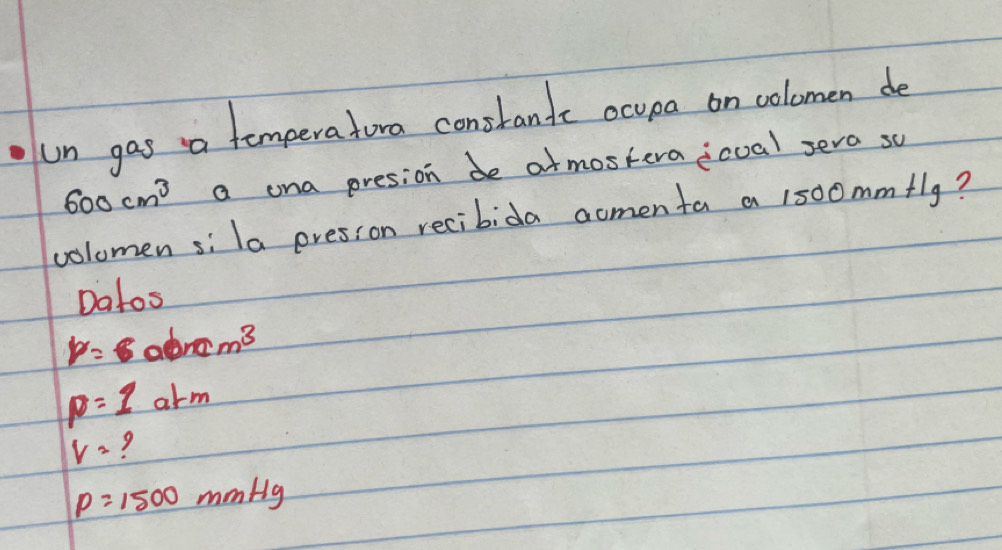 • Un gas a temperatura constante ocupa un volumen de
600 cm³ a una presión de atmosfera ¿cual sera su
volumen si la presion recibida aumenta a 1500 mmHg?
Datos
V=6 m³
P=1 atm
V=?
P=1500 mmHg